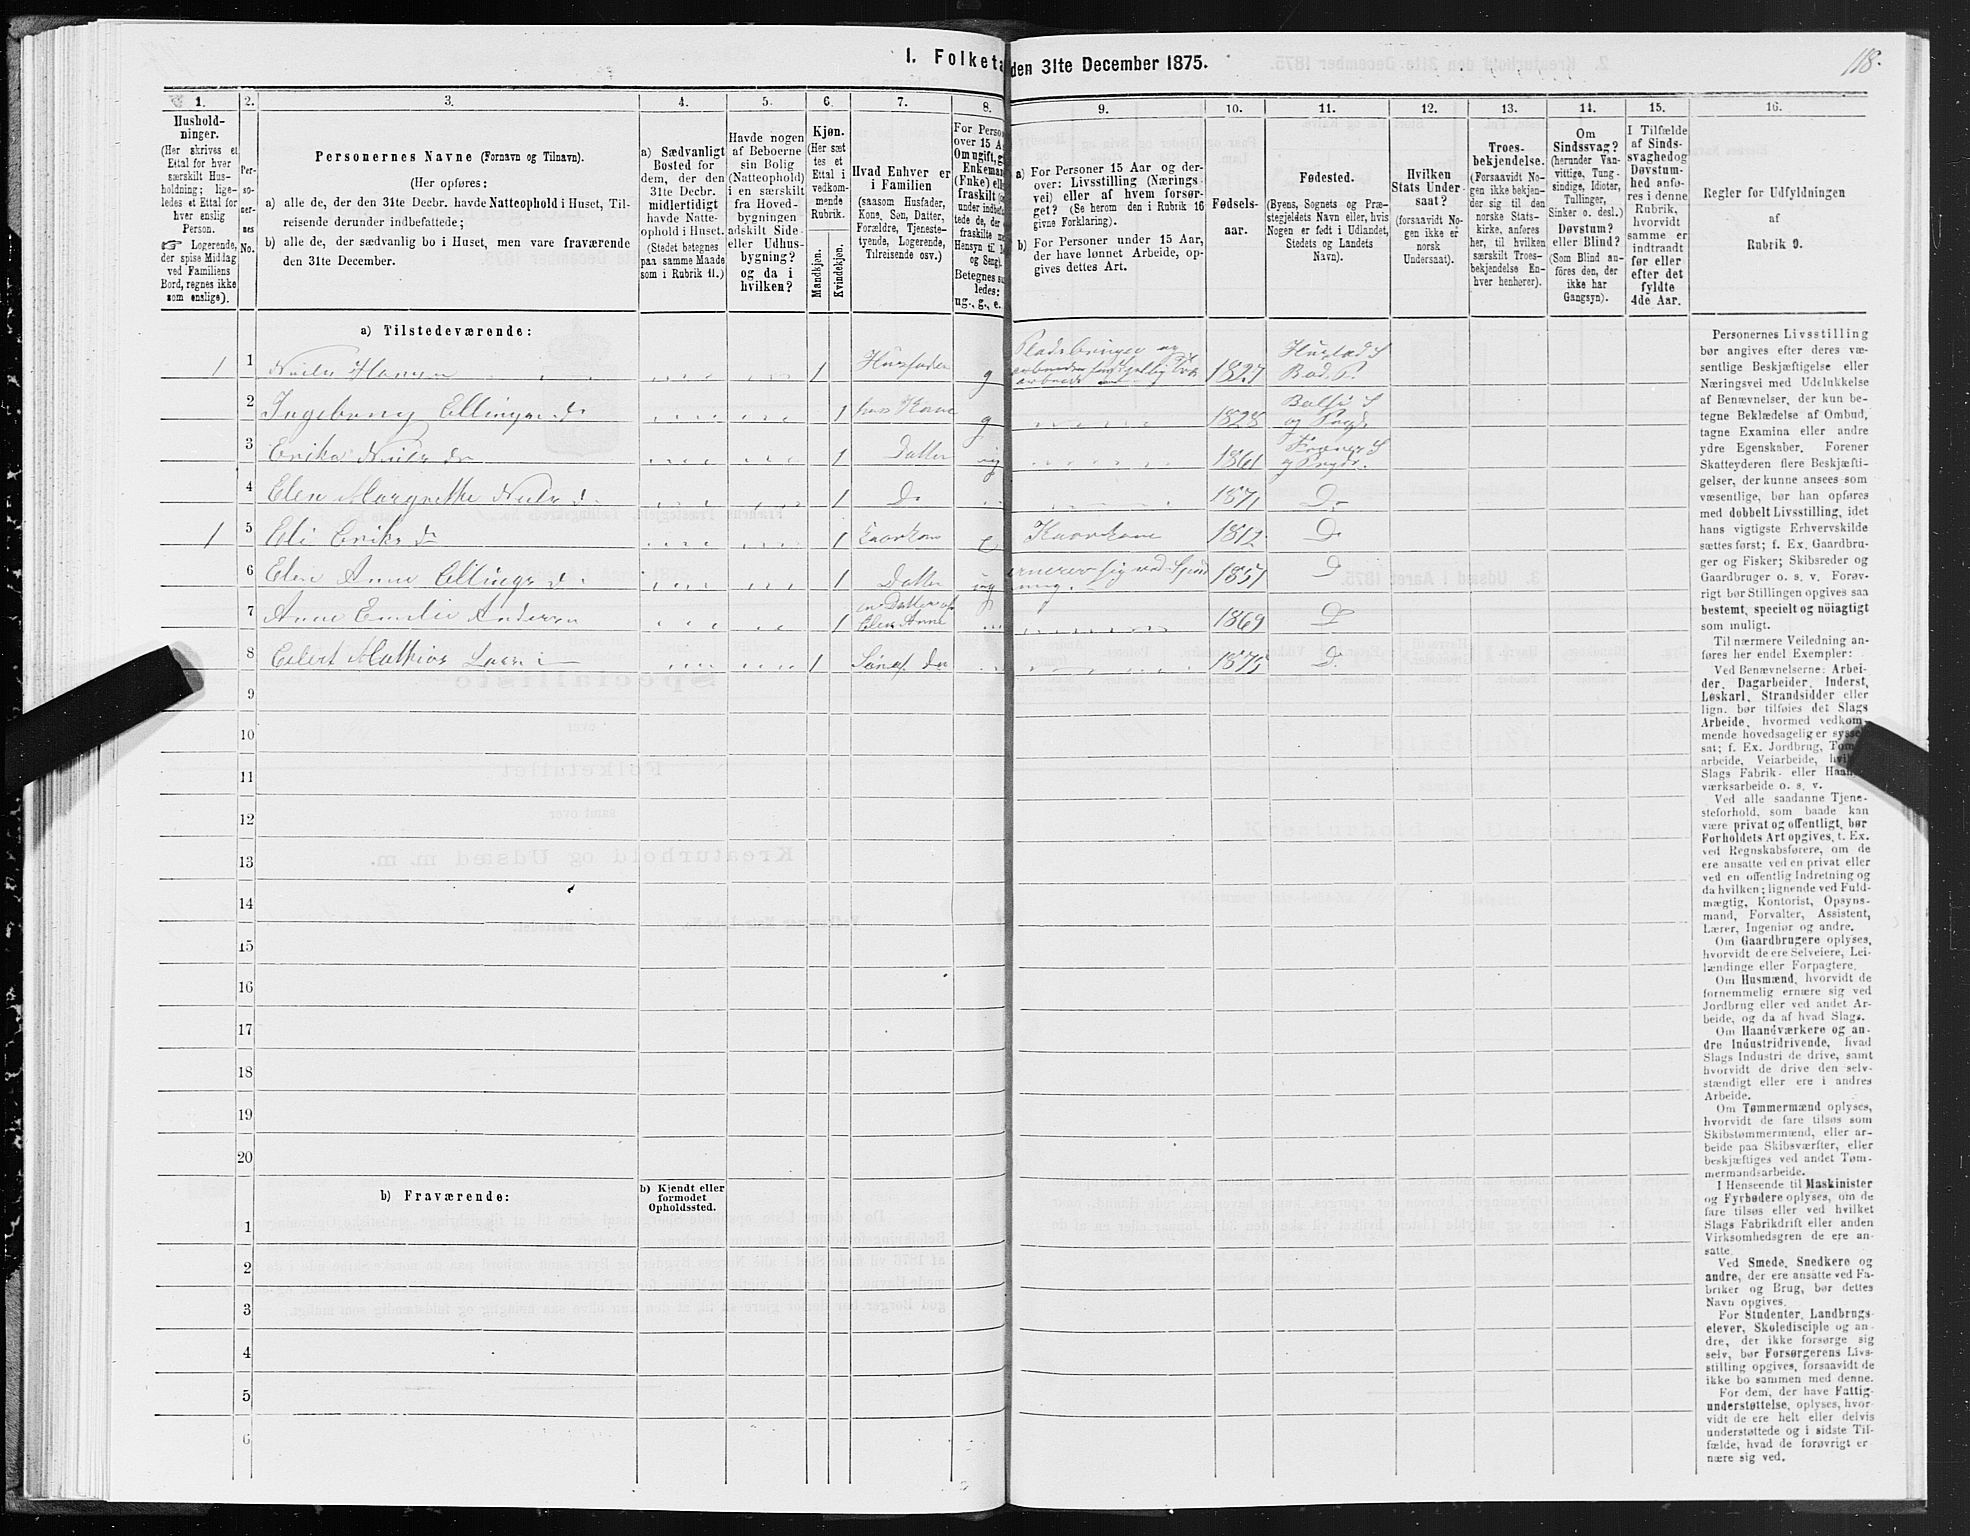 1. Folketa
den 31te December 1875.
118.
1.
2.
3.
4.
5.
6.
7.
8.
9.
10.
11.
12.
13.
14.
15.
16.
Hushold-
ninger.
(Her skrives et
Ettal for hver
særskilt Hus-
holdning; lige-
ledes et Ettal for
hver enslig
Person.
☞ Logerende,
der spise Middag
ved Familiens
Bord, regnes ikke
som enslige).
Per-
so-
ner-
nes
No.
Personernes Navne (Fornavn og Tilnavn).
(Her opføres:
a) alle de, der den 31te Decbr. havde Natteophold i Huset, Til-
reisende derunder indbefattede;
b) alle de, der sædvanlig bo i Huset, men vare fraværende
den 31te December.
a) Sædvanligt
Bosted for
dem, der den
31te Decbr.
midlertidigt
havde Natte-
ophold i Huset.
(Stedet betegnes
paa samme Maade
som i Rubrik 11.)
Havde nogen
af Beboerne
sin Bolig
(Natteophold)
i en særskilt
fra Hoved-
bygningen
adskilt Side-
eller Udhus-
bygning?
og da i
hvilken?
Kjøn.
(Her sæt
tes et
Ettal i
vedkom-
mende
Rubrik.
Mandkjøn.
Kvindekjøn.
Hvad Enhver er
i Familien
(saasom Husfader,
Kone, Søn, Datter,
Forældre, Tjeneste-
tyende, Logerende,
Tilreisende osv.)
For Perso
over 15 A
Om ugift, g
Enkeman
(Fnke) ell
fraskilt
under indbef
tede de, de
fraskilte
Hensyn til
og Seng).
Betegnes s
ledes:
ug., g., e.
a) For Personer 15 Aar og der-
over: Livsstilling (Nærings-
vei) eller af hvem forsør-
get? (Se herom den i Rubrik 16
givne Forklaring).
b) For Personer under 15 Aar,
der have lønnet Arbeide, op-
gives dettes Art.
Fødsels-
aar.
Fødested.
(Byens, Sognets og Præ-
stegjeldets Navn eller, hvis
Nogen er født i Udlandet,
Stedets og Landets
Navn).
Hvilken
Stats Under-
saat?
(forsaavidt No-
gen ikke er
norsk
Undersaat).
Troes-
bekjendelse.
(Forsaavidt No-
gen ikke bekjen-
der sig til den
norske Stats-
kirke, anføres
her, til hvilken
særskilt Troes-
bekjendelse En-
hver henhører).
Om
Sindssvag?
(herunder Van-
vittige, Tung-
sindige, Idioter,
Tullinger,
Sinker o. desl.)
Døvstum?
eller Blind?
(Som Blind an-
føres den, der
ikke har
Gangsyn).
I Tilfælde
af Sinds-
svaghedog
Døvstum-
hed anfø-
res i denne
Rubrik,
hvorvidt
samme er
indtraadt
før eller
efter det
fyldte
4de Aar.
Regler for Udfyldningen
af
Rubrik 9.
a) Tilstedeværende:
1 1 Niels Hansen 1 Husfader g 1827 Hustad S Bod P.
2 Ingeborg Ellingsdr 1 hans Kone g 1828 og Prgd.
3 Erika Nielsdr 1 Datter ug 1861 Fræner S og Prgd.
4 Elen Margrethe Nielsdr 1 Do 1871 Do
1 5 Eli Eriksdr 1 Kaarkone e Kaarkone 1812 D
6 Elen Anne Ellingsdr 1 Datter ug ernærer sig ved Spinding. 1851 D
7 Anne Emilie Andersen 1 en Datter af Elen Anne 1869 D
8 Eilert Mathias 1 Søn af Do 1875 D.
9
10
11
12
13
14
15
16
17
18
19
20
b) Fraværende:
b) Kjendt eller
formodet
Opholdssted.
1
2
3
4
5
6
Personernes Livsstilling
bør angives efter deres væ-
sentlige Beskjæftigelse eller
Næringsvei med Udelukkelse
af Benævnelser, der kun be-
tegne Beklædelse af Ombud,
tagne Examina eller andre
ydre Egenskaber. Forener
Skatteyderen flere Beskjæfti-
gelser, der kunne ansees som
væsentlige, bør han opføres
med dobbelt Livsstilling, idet
hans vigtigste Erhvervskilde
sættes først; f. Ex. Gaardbru-
ger og Fisker; Skibsreder og
Gaardbruger o. s. v. Forøv-
rigt bør Stillingen opgives saa
bestemt, specielt og nöiagtigt
som muligt.
Til nærmere Veiledning an-
føres her endel Exempler:
Ved Benævnelserne: Arbei-
der, Dagarbeider, Inderst,
Løskarl, Strandsidder eller
lign. bør tilføies det Slags
Arbeide, hvormed vedkom-
mende hovedsagelig er syssel
sat; f. Ex. Jordbrug, Tom
arbeide, Veiarbeide, hvi
Slags Fabrik- eller Haand
værksarbeide o. s. v.
Ved alle saadanne Tjene-
steforhold, som baade kan
være privat og offentligt, bør
Forholdets Art opgives, t. Ex.
ved Regnskabsførere, om de
ere ansatte ved en privat eller
ved en offentlig Indretning og
da hvilken; lignende ved Fuld-
mægtig, Kontorist, Opsyns-
mand, Forvalter, Assistent,
Lærer, Ingeniør og andre.
Om Gaardbrugere oplyses,
hvorvidt de ere Selveiere, Lei-
lændinge eller Forpagtere.
Om Husmænd, hvorvidt de
fornemmelig ernære sig ved
Jordbrug eller ved andet Ar-
beide, og da af hvad Slags.
Om Haandværkere og an-
dre Industridrivende, hvad
Slags Industri de drive, samt
hvorvidt de drive den selv-
stændigt eller ere i andres
Arbeide.
Om Tømmermænd oplyses,
hvorvidt de fare tilsøs som
Skibstømmermænd, eller ar-
beide paa Skibsværfter, eller
beskjæftiges ved andet Tøm-
mermandsarbeide.
I Henseende til Maskinister
og Fyrbødere oplyses, om de
fare tilsøs eller ved hvilket
Slags Fabrikdrift eller anden
Virksomhedsgren de ere an-
satte.
Ved Smede, Snedkere og
andre, der ere ansatte ved Fa-
briker og Brug, bør dettes
Navn opgives.
For Studenter, Landbrugs-
elever, Skoledisciple og an-
dre, der ikke forsørge sig
selv, bør Forsørgerens Livs-
stilling opgives, forsaavidt de
ikke bo sammen med denne.
For dem, der have Fattig-
understøttelse, oplyses, hvor-
vidt de ere helt eller delvis
understøttede og i sidste Til-
fælde, hvad de forøvrigt er
nære sig ved.